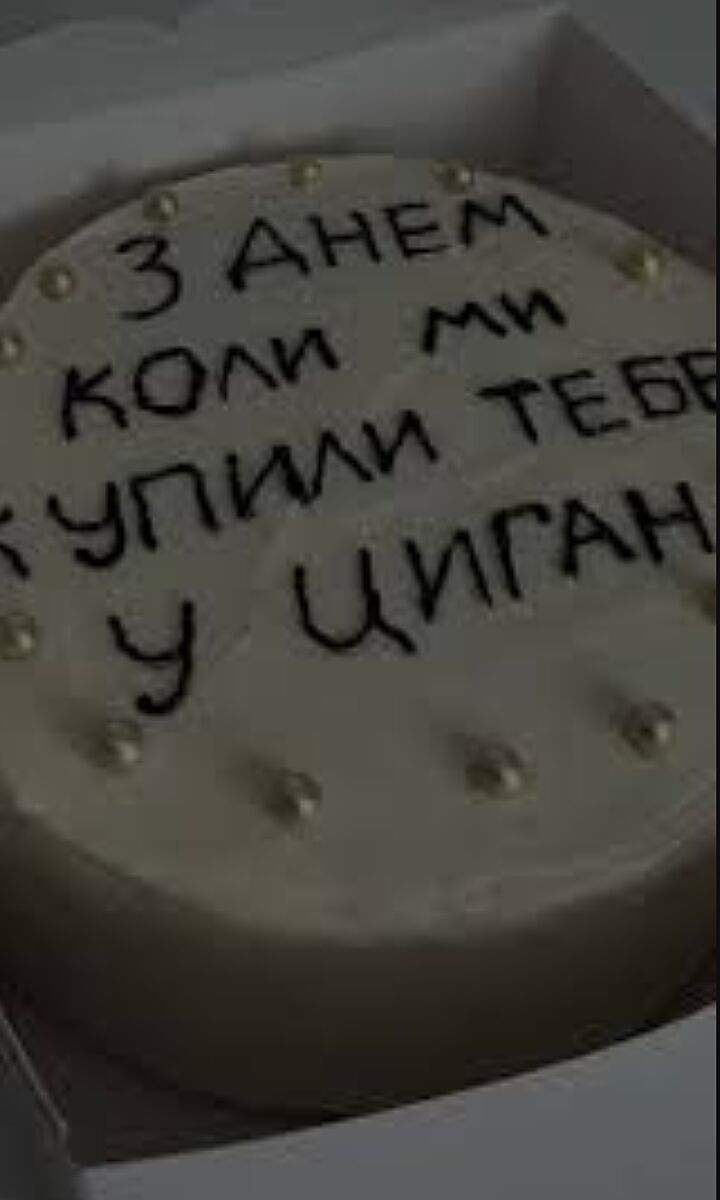 З ДНЕМ
КОЛИ МИ
КУПИЛИ ТЕБЕ
У ЦИГАН